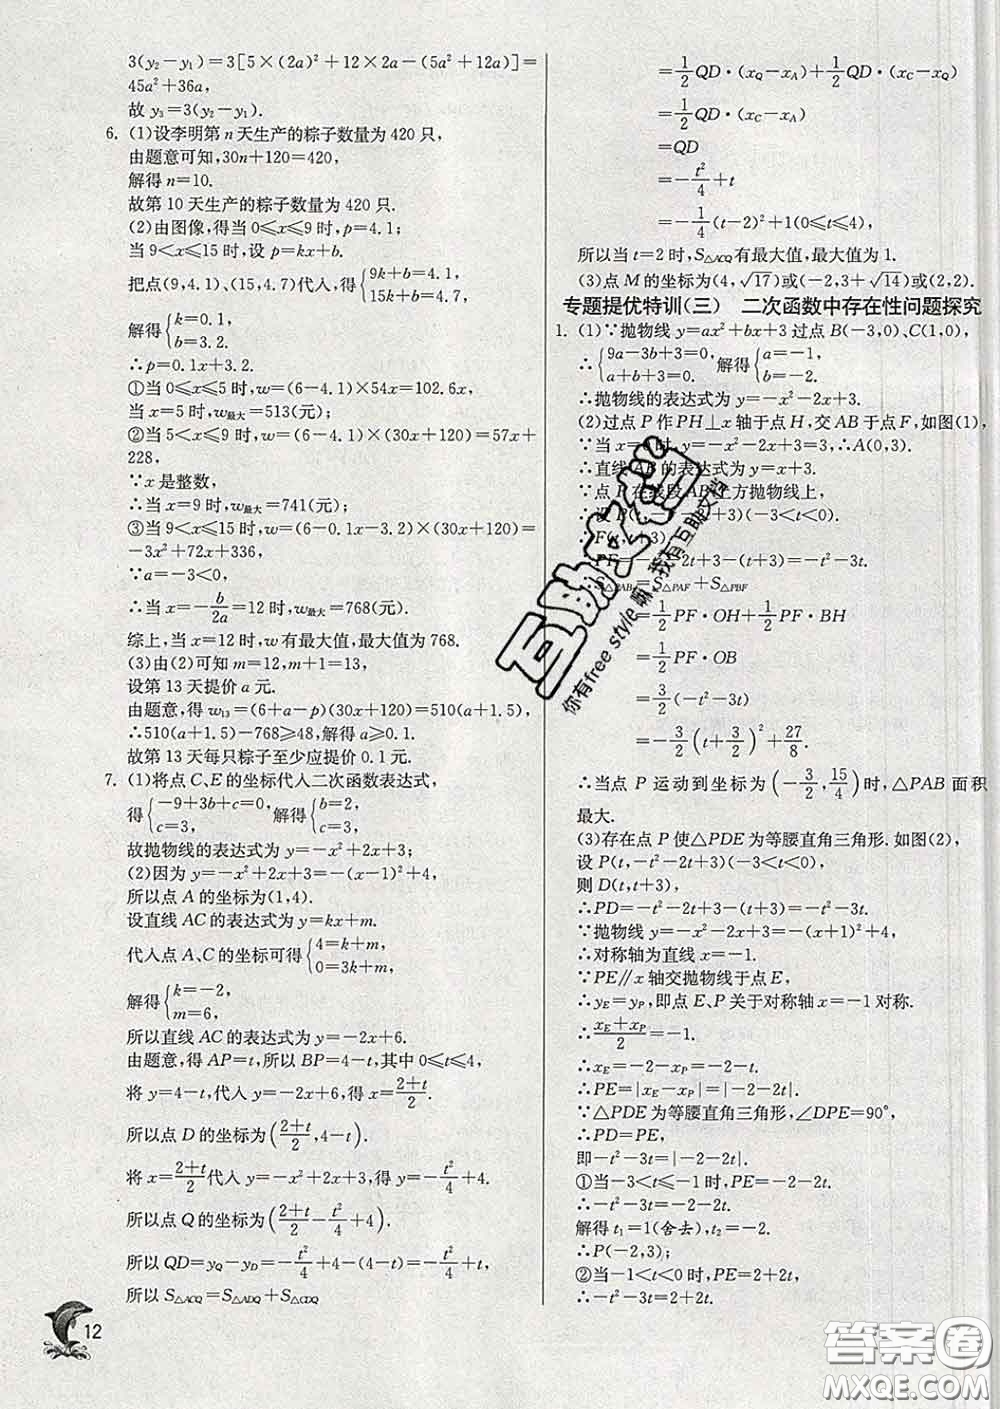 3(y₂-y₁)=3[5×(2a)²+12×2a-(5a²+12a)]=
45a²+36a,
故 y₃=3(y₂-y₁).
6. (1)设李明第 n 天生产的粽子数量为 420 只,
由题意可知,30n+120=420,
解得 n=10.
故第 10 天生产的粽子数量为 420 只.
(2)由图像,得当 0≤x≤9 时,p=4.1;
当 9<x≤15 时,设 p=kx+b.
把点(9,4.1)、(15,4.7)代入,得{9k+b=4.1, 15k+b=4.7.
解得{k=0.1, b=3.2.
∴p=0.1x+3.2.
①当 0≤x≤5 时,w=(6-4.1)×54x=102.6x,
当 x=5 时,w最大=513(元);
②当 5<x≤9 时,w=(6-4.1)×(30x+120)=57x+
228,
∵x 是整数,
∴当 x=9 时,w最大=741(元);
③当 9<x≤15 时,w=(6-0.1x-3.2)×(30x+120)=
-3x²+72x+336,
∵a=-3<0,
∴当 x=-b/2a=12 时,w最大=768(元).
综上,当 x=12 时,w 有最大值,最大值为 768.
(3)由(2)可知 m=12,m+1=13,
设第 13 天提价 a 元.
由题意,得 w₁₃=(6+a-p)(30x+120)=510(a+1.5),
∴510(a+1.5)-768≥48,解得 a≥0.1.
故第 13 天每只粽子至少应提价 0.1 元.
7. (1)将点 C、E 的坐标代入二次函数表达式,
得{-9+3b+c=0, c=3, 解得{b=2, c=3,
故抛物线的表达式为 y=-x²+2x+3;
(2)因为 y=-x²+2x+3=-(x-1)²+4,
所以点 A 的坐标为(1,4).
设直线 AC 的表达式为 y=kx+m.
代入点 A、C 的坐标可得{4=k+m, 0=3k+m,
解得{k=-2, m=6,
所以直线 AC 的表达式为 y=-2x+6.
由题意,得 AP=t,所以 BP=4-t,其中 0≤t≤4,
将 y=4-t,代入,得 4-t=-2x+6,得 x=(2+t)/2.
所以点 D 的坐标为((2+t)/2,4-t).
将 x=(2+t)/2代入 y=-x²+2x+3,得 y=4-t²/4.
所以点 Q 的坐标为((2+t)/2-t²/4+4).
所以 QD=y_Q-y_D=-t²/4+4-(4-t)=-t²/4+t,
所以 S△ACQ=S△ADQ+S△CDQ
=1/2QD·(x_Q-x_A)+1/2QD·(x_C-x_Q)
=1/2QD·(x_C-x_A)
=QD
=-t²/4+t
=-1/4(t-2)²+1(0≤t≤4),
所以当 t=2 时,S△ACQ有最大值,最大值为 1.
(3)点 M 的坐标为(4,√17)或(-2,3+√14)或(2,2).
专题提优特训(三) 二次函数中存在性问题探究
1. (1)∵抛物线 y=ax²+bx+3 过点 B(-3,0)、C(1,0),
∴{9a-3b+3=0, a+b+3=0, 解得{a=-1, b=-2.
∴抛物线的表达式为 y=-x²-2x+3.
(2)过点 P 作 PH⊥x 轴于点 H,交 AB 于点 F,如图(1),
∵当 x=0时,y=-x²-2x+3=3,∴A(0,3).
∴直线 AB 的表达式为 y=x+3.
∵点 P 在线段 AB上方抛物线上,
∴设 P(t,-t²-2t+3)(-3<t<0).
∴F(t,t+3).
∴PF=-t²-2t+3-(t+3)=-t²-3t.
∴S△PAB=S△PAF+S△PBF
=1/2PF·OH+1/2PF·BH
=1/2PF·OB
=3/2(-t²-3t)
=-3/2(t+3/2)²+27/8.
∴当点 P 运动到坐标为(-3/2,15/4)时,△PAB 面积
最大.
(3)存在点 P 使△PDE 为等腰直角三角形.如图(2),
设 P(t,-t²-2t+3)(-3<t<0),
则 D(t,t+3),
∴PD=-t²-2t+3-(t+3)=-t²-3t.
∵抛物线 y=-x²-2x+3=-(x+1)²+4,
∴对称轴为直线 x=-1.
∵PE∥x 轴交抛物线于点 E,
∴y_E=y_P,即点 E、P 关于对称轴 x=-1 对称.
∴(x_E+x_P)/2=-1.
∴x_E=-2-x_P=-2-t.
∴PE=|x_E-x_P|=|-2-2t|.
∵△PDE 为等腰直角三角形,∠DPE=90°,
∴PD=PE,
即-t²-3t=|-2-2t|.
①当-3<t≤-1 时,PE=-2-2t.
∴-t²-3t=-2-2t.
解得 t₁=1(舍去),t₂=-2.
∴P(-2,3);
②当-1<t<0 时,PE=2+2t.
∴-t²-3t=2+2t.
12
互助文档
你有free style嘛,我有互助文档
答案圈
MXQE.COM